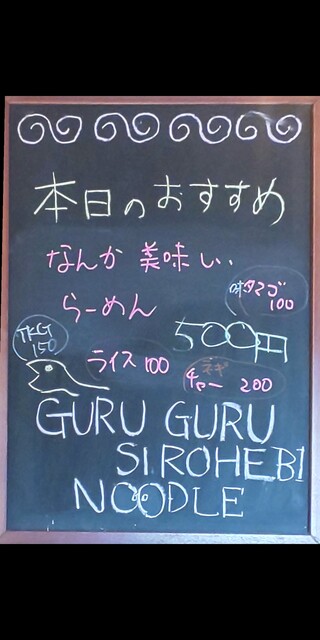 本日のおすすめ
なんか 美味しい
らーめん
味タマゴ
100
500円
TKG
150
ライス 100
ネギ
チャー 200
GURU GURU
SIROHEBI
NOODLE